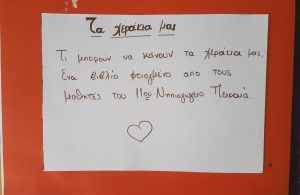 Τα χεράκια μας
Τι μπορούν να κάνουν τα χεράκια μας;
Ένα βιβλίο φτιαγμένο απο τους
μαθητές του 11ου Νηπιαγωγείο Πειραιά